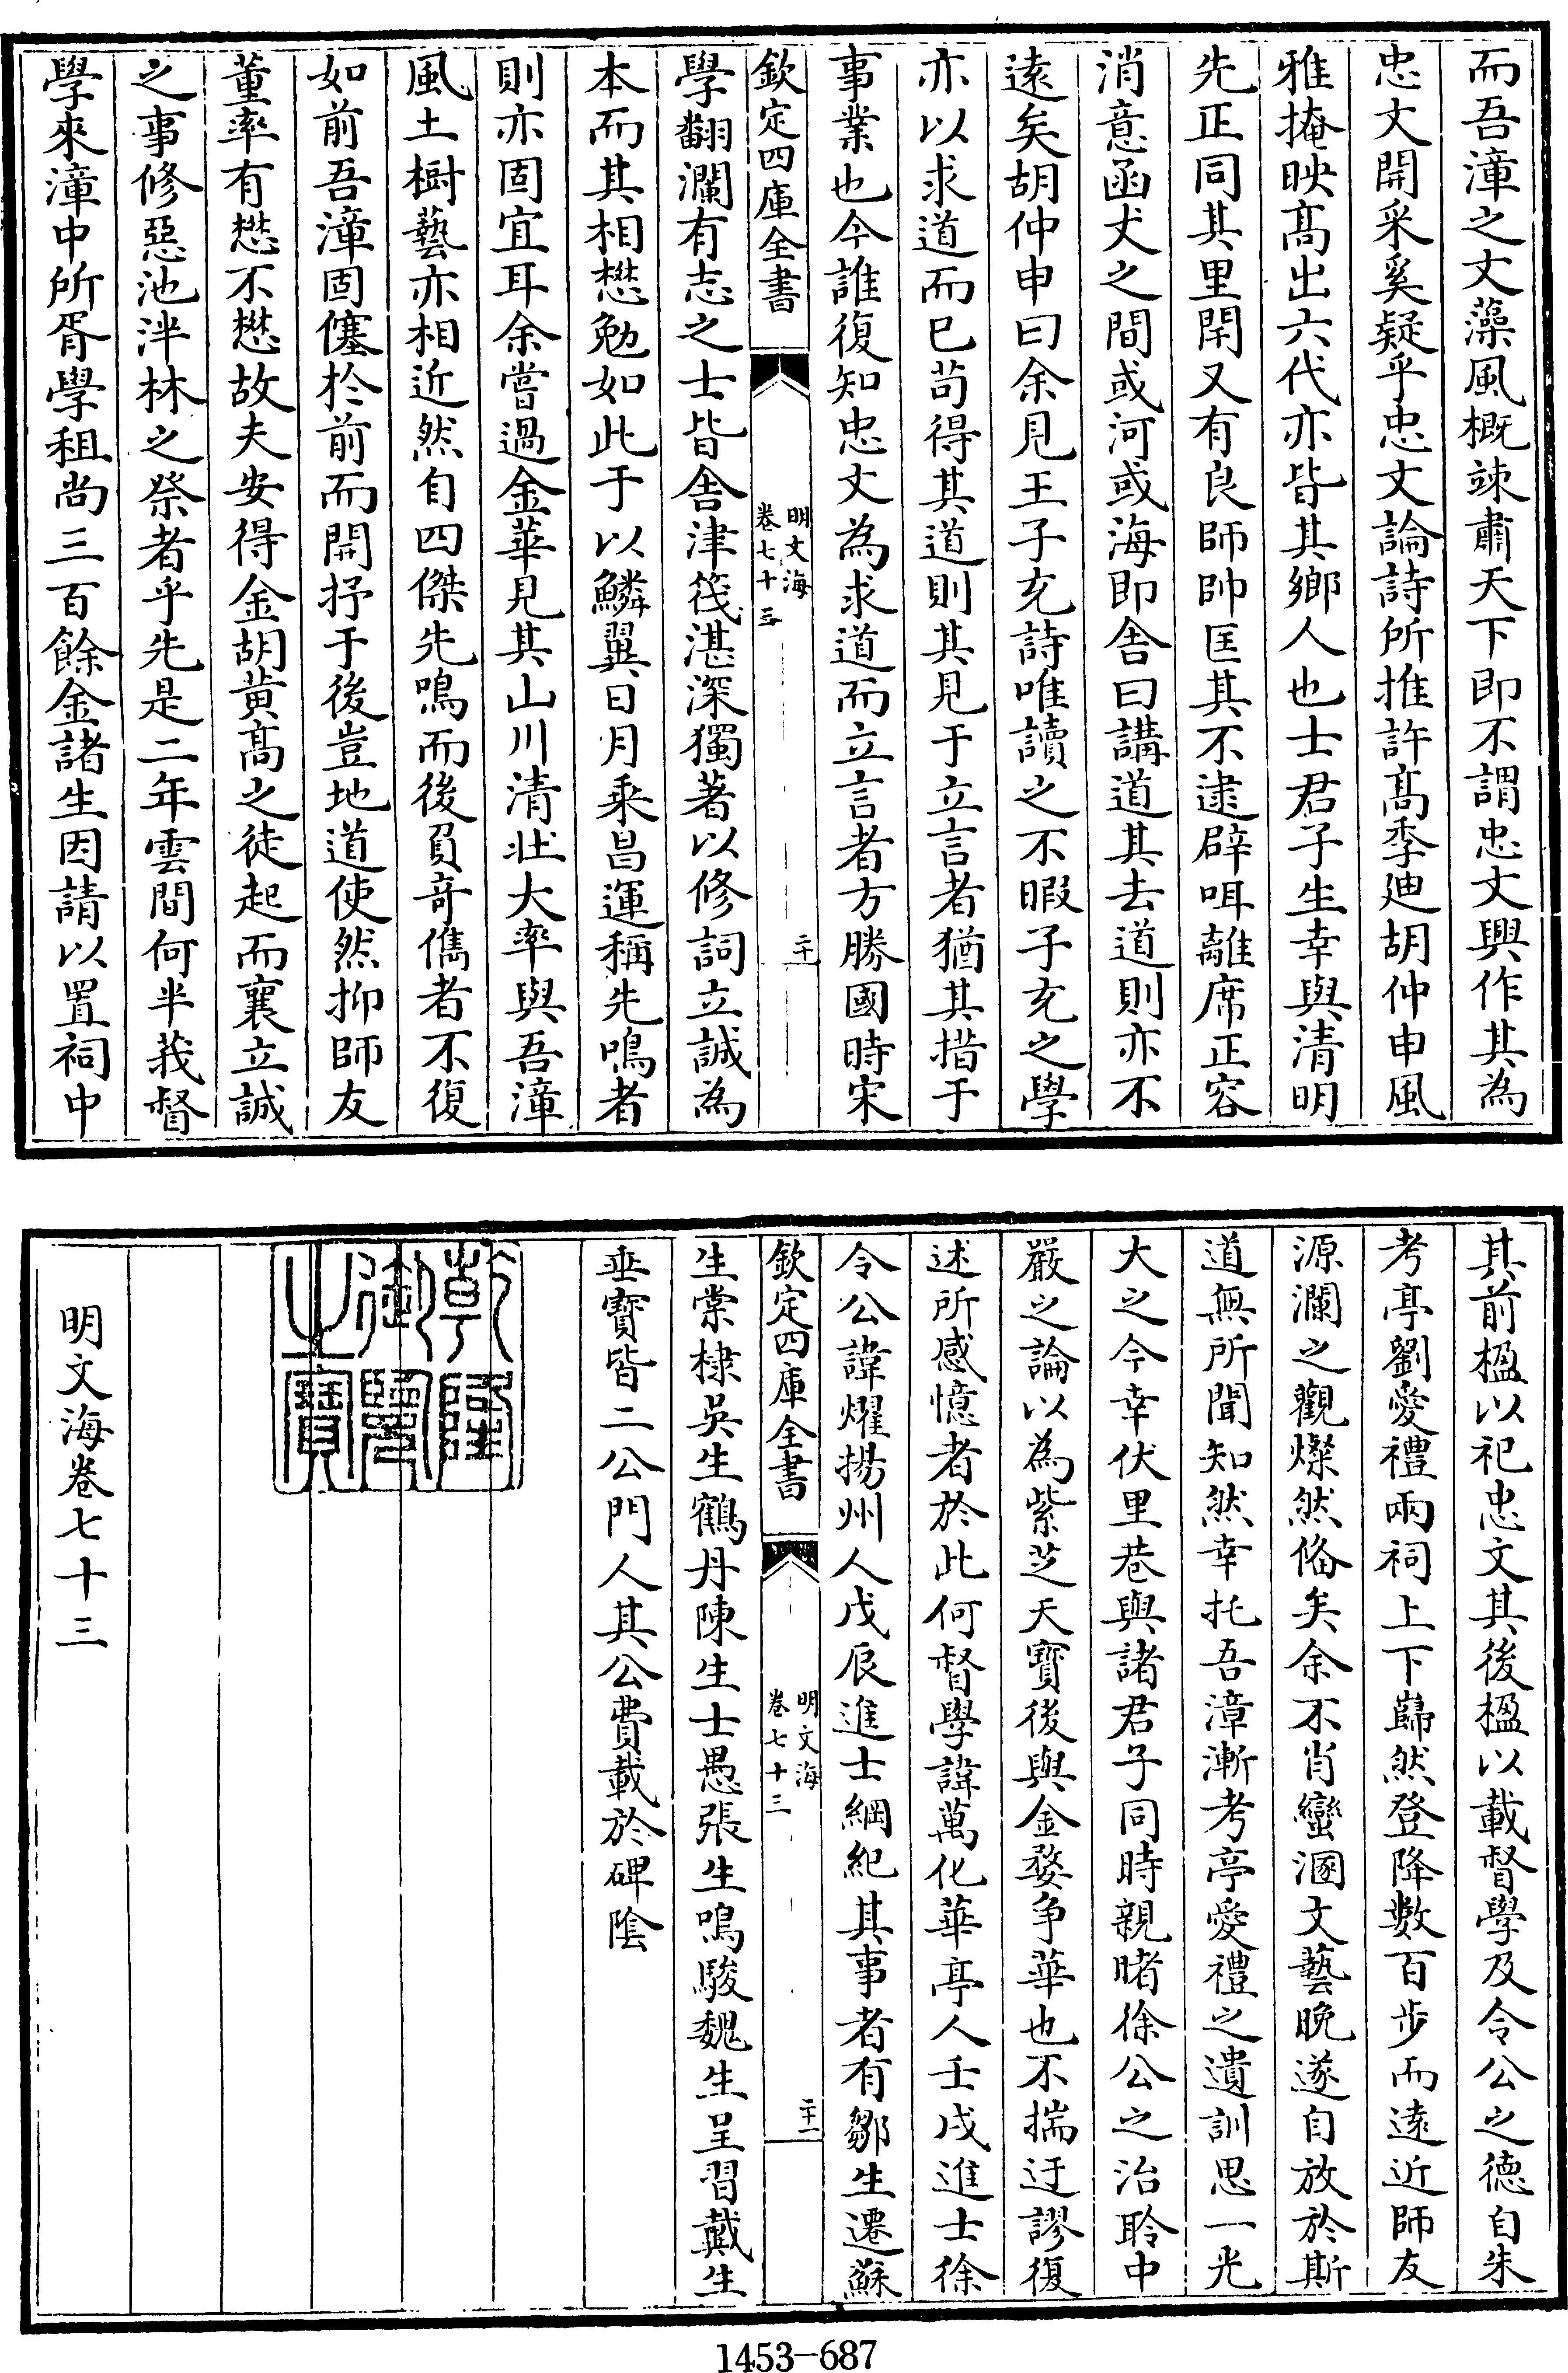 而吾漳之文藻風概竦肅天下即不謂忠文興作其為
忠文開采奚疑乎忠文論詩所推許髙季廸胡仲申風
雅掩映髙出六代亦皆其鄉人也士君子生幸與清明
先正同其里閈又有良師帥匡其不逮辟咡離席正容
消意函丈之間或河或海即舍曰講道其去道則亦不
逺矣胡仲申曰余見王子充詩唯讀之不暇子充之學
亦以求道而已茍得其道則其見于立言者猶其措于
事業也今誰復知忠文為求道而立言者方勝國時宋
欽定四庫全書
明文海
卷七十三
二十
學翻瀾有志之士皆舍津筏湛深獨著以修詞立誠為
本而其相懋勉如此于以鱗翼日月乘昌運稱先鳴者
則亦固宜耳余嘗過金華見其山川清壯大率與吾漳
風土樹藝亦相近然自四傑先鳴而後負奇儁者不復
如前吾漳固僿於前而開抒于後豈地道使然抑師友
董率有懋不懋故夫安得金胡黄髙之徒起而襄立誠
之事修惡池泮林之祭者乎先是二年雲間何半莪督
學來漳中所胥學租尚三百餘金諸生因請以置祠中
其前楹以祀忠文其後楹以載督學及令公之德自朱
考亭劉愛禮兩祠上下巋然登降數百步而逺近師友
源瀾之觀燦然俻矣余不肖蠻溷文藝晚遂自放於斯
道無所聞知然幸托吾漳漸考亭愛禮之遺訓思一光
大之今幸伏里巷與諸君子同時親睹徐公之治聆中
嚴之論以為紫芝天寶後與金婺争華也不揣迂謬復
述所感憶者於此何督學諱萬化華亭人壬戌進士徐
令公諱燿揚州人戊辰進士綱紀其事者有鄒生遷蘇
欽定四庫全書
明文海
卷七十三
二十一
生棠棣吳生鶴丹陳生士愚張生鳴駿魏生呈習戴生
垂寳皆二公門人其公費載於碑隂
乾隆
御覽
之寶
明文海卷七十三
1453-687